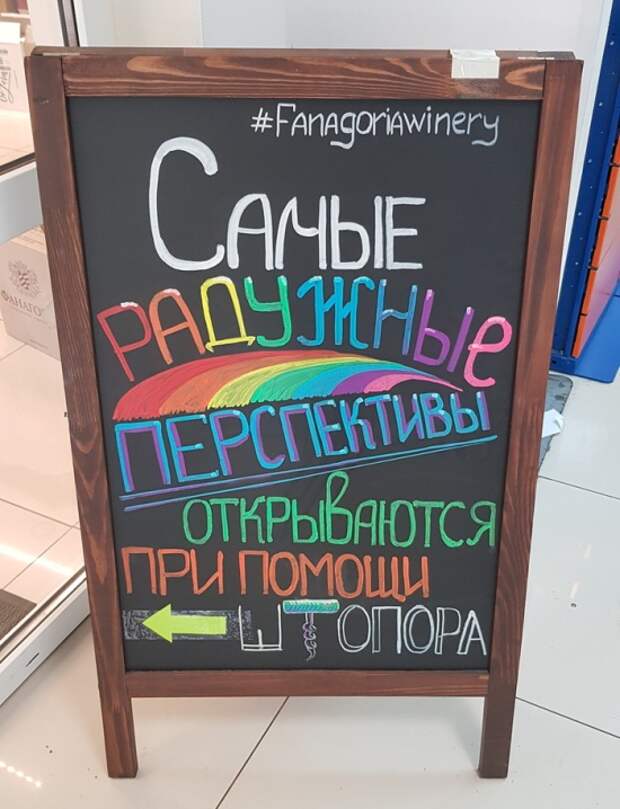 #Fanagoriawinery
САМЫЕ
РАДУЖНЫе
ПЕРСПЕКТИВЫ
ОТКРЫВАЮТСЯ
ПРИ ПОМОЩИ
ШТОПОРА
ФАНАГО